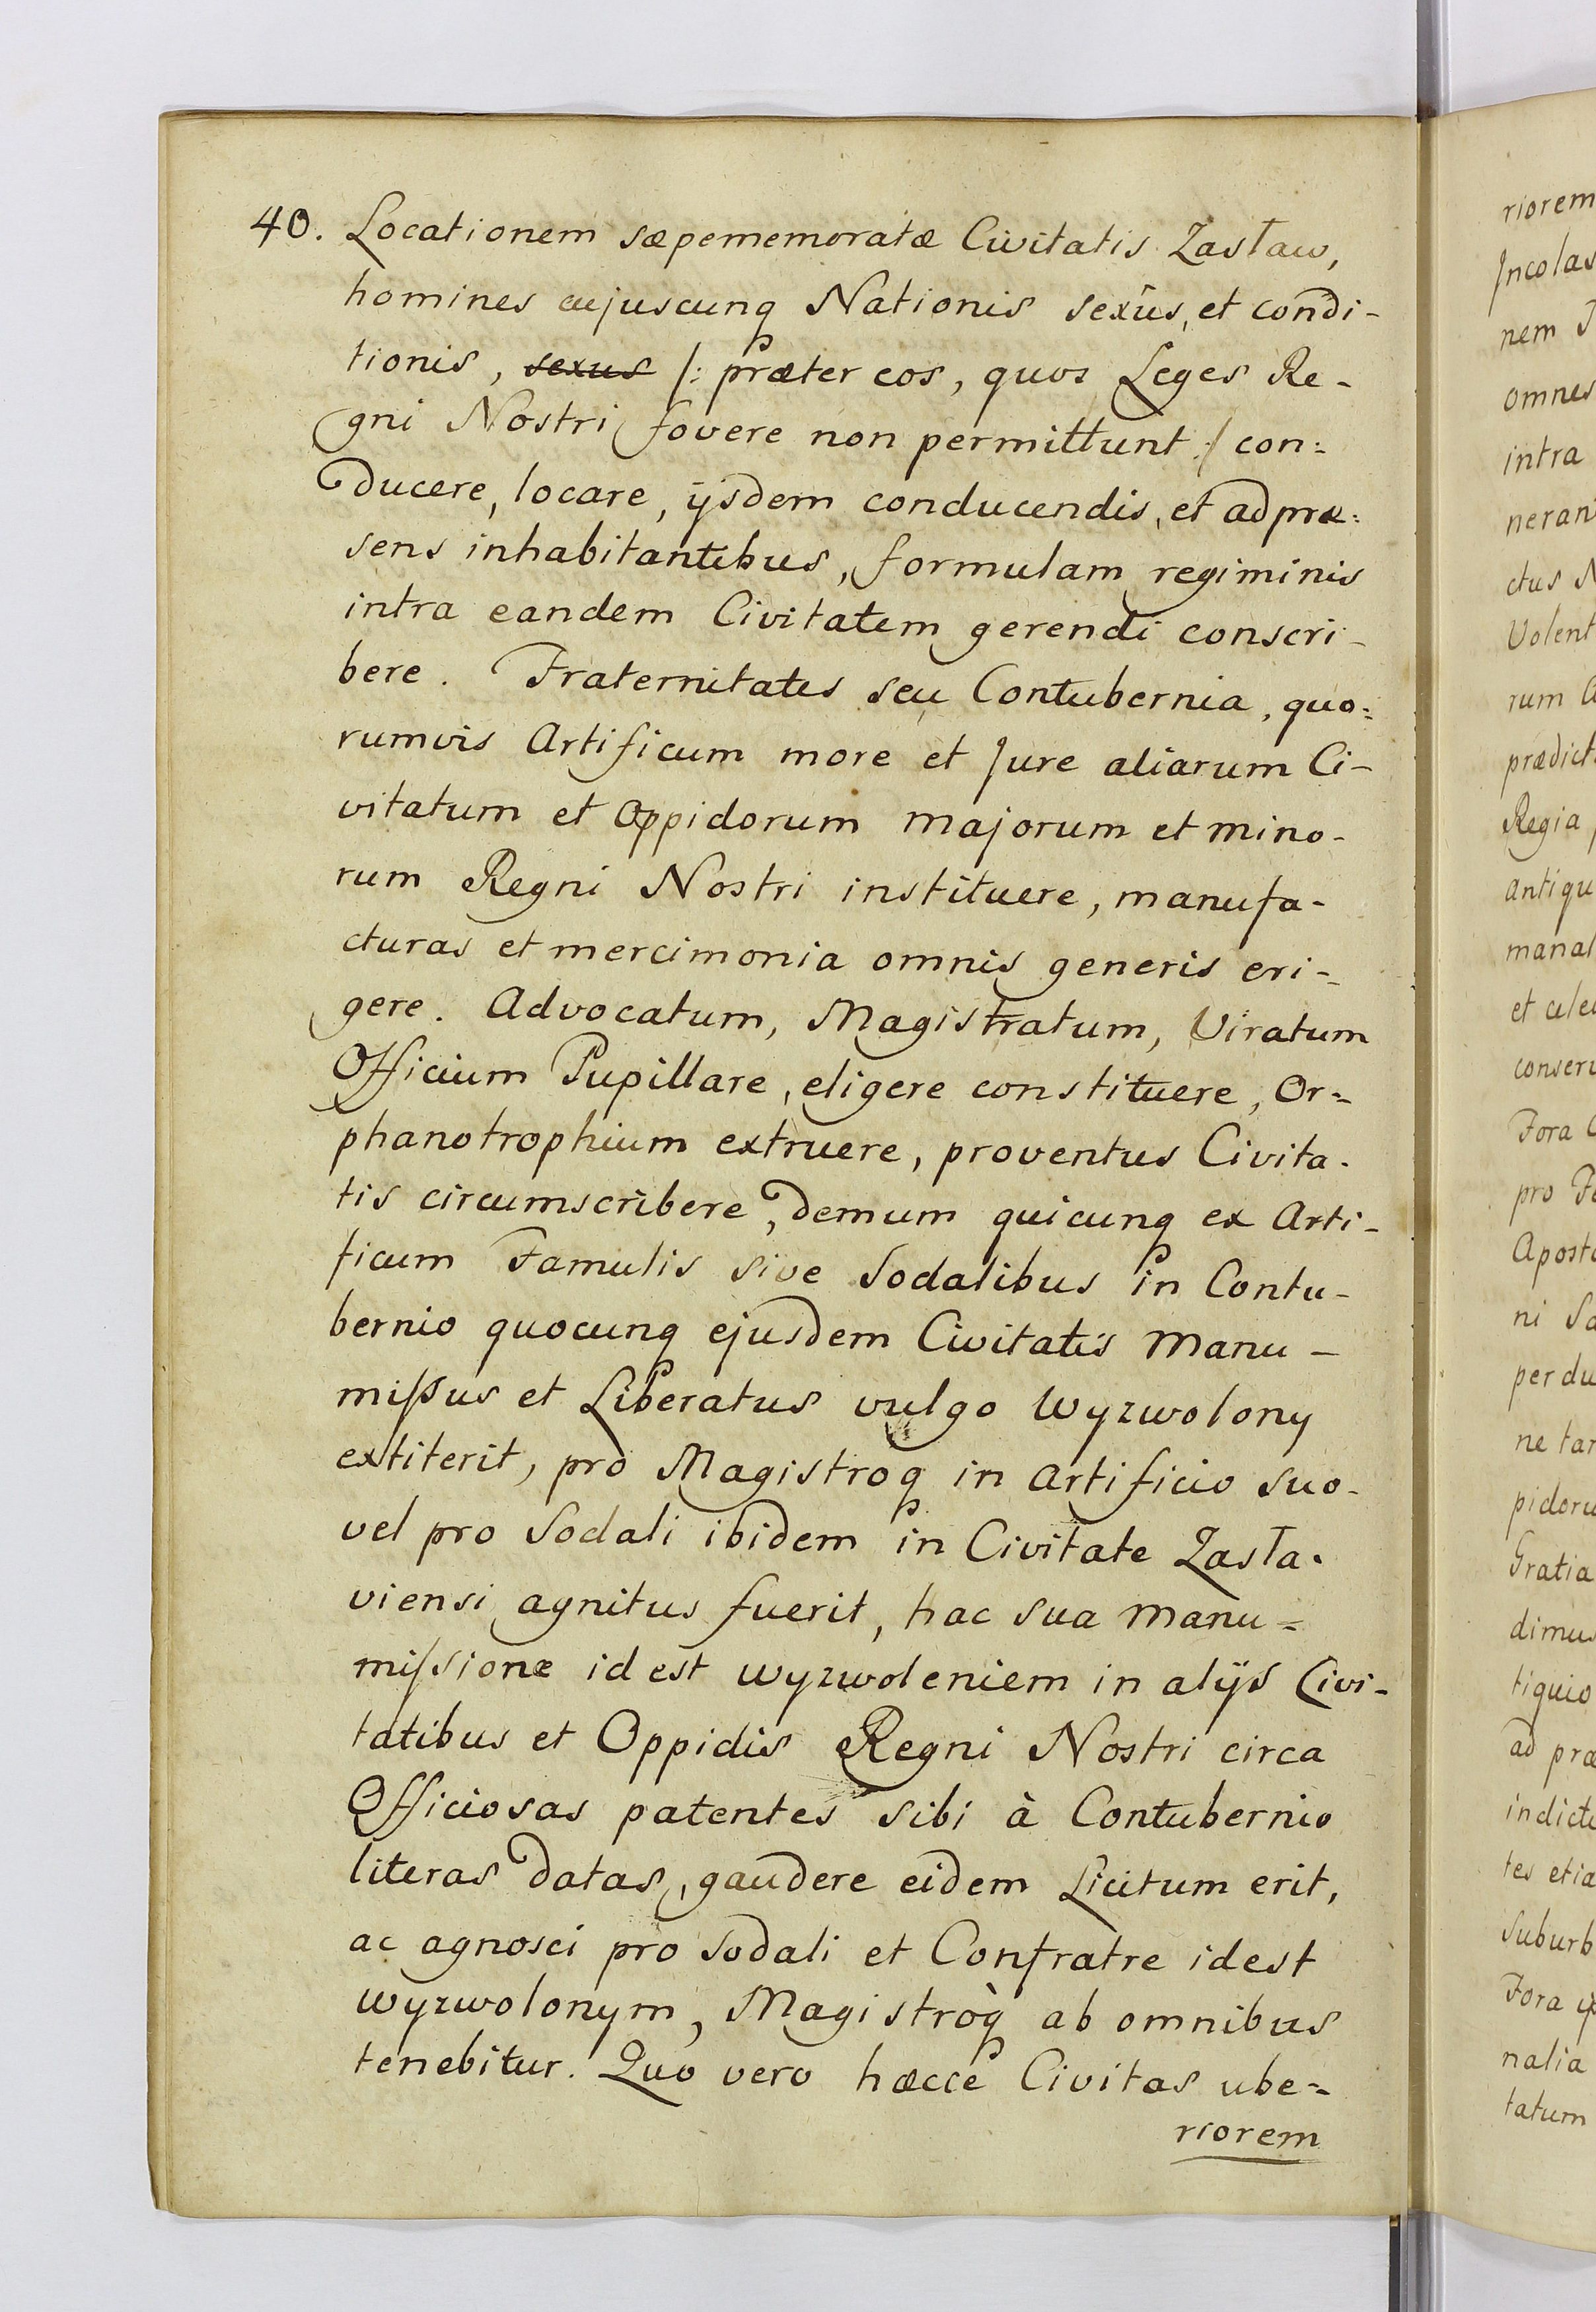 40. Locationem sæpememoratæ Civitatis Zasław,
homines cujuscunq Nationis sexûs, et condi-
tionis, sexus /: præter eos, quos Leges Re-
gni Nostri fovere non permittunt :/ con:
ducere, locare, ijsdem conducendis, et ad præ:
sens inhabitantibus, formulam regiminis
intra eandem Civitatem gerendi conscri-
bere. Fraternitates seu Contubernia, quo:
rumvis Artificum more et Jure aliarum Ci-
vitatum et Oppidorum majorum et mino-
rum Regni Nostri instituere, manufa-
cturas et mercimonia omnis generis eri-
gere. Advocatum, Magistratum, Viratum
Officium Pupillare, eligere constituere, Or=
phanotrophium extruere, proventus Civita-
tis circumscribere, demum quicunq ex Arti-
ficum Famulis sive Sodalibus in Contu-
bernio quocunq ejusdem Civitatis Manu-
missus et Liberatus vulgo Wyzwolony
extiterit, pro Magistroq in Artificio suo-
vel pro Sodali ibidem in Civitate Zasła-
viensi agnitus fuerit, hac sua manu=
missione id est wyzwoleniem in alijs Civi-
tatibus et Oppidis Regni Nostri circa
Officiosas patentes sibi à Contubernio
literas datas, gaudere eidem Licitum erit,
ac agnosci pro Sodali et Confratre id est
wyzwolonym, Magistròq ab omnibus
tenebitur. Quo vero hæcce Civitas ube=
riorem
riorem
Incolas
nem
omnes
intra
neran
ctus
Volent
rum
prædict
Regia
antiqu
manal
et cele
conserv
Fora
pro
Aposto
ni
per du
ne tan
pidoru
Gratia
dimus
tiquio
ad præ
indicte
tes etia
Suburb
Fora
nalia
tatum